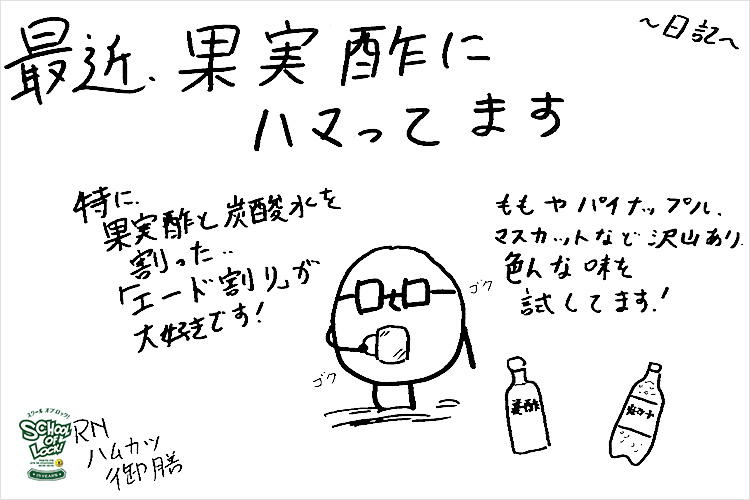 ～日記～
最近、果実酢に
ハマってます
特に、
果実酢と炭酸水を
割った..
「エード割り」が
大好きです!
ももやパイナップル、
マスカットなど沢山あり、
色んな味を
試してます!
ゴク
ゴク
スクール オブ ロック!
SCHOOL
OF
LOCK!
RN
ハムカツ
御膳